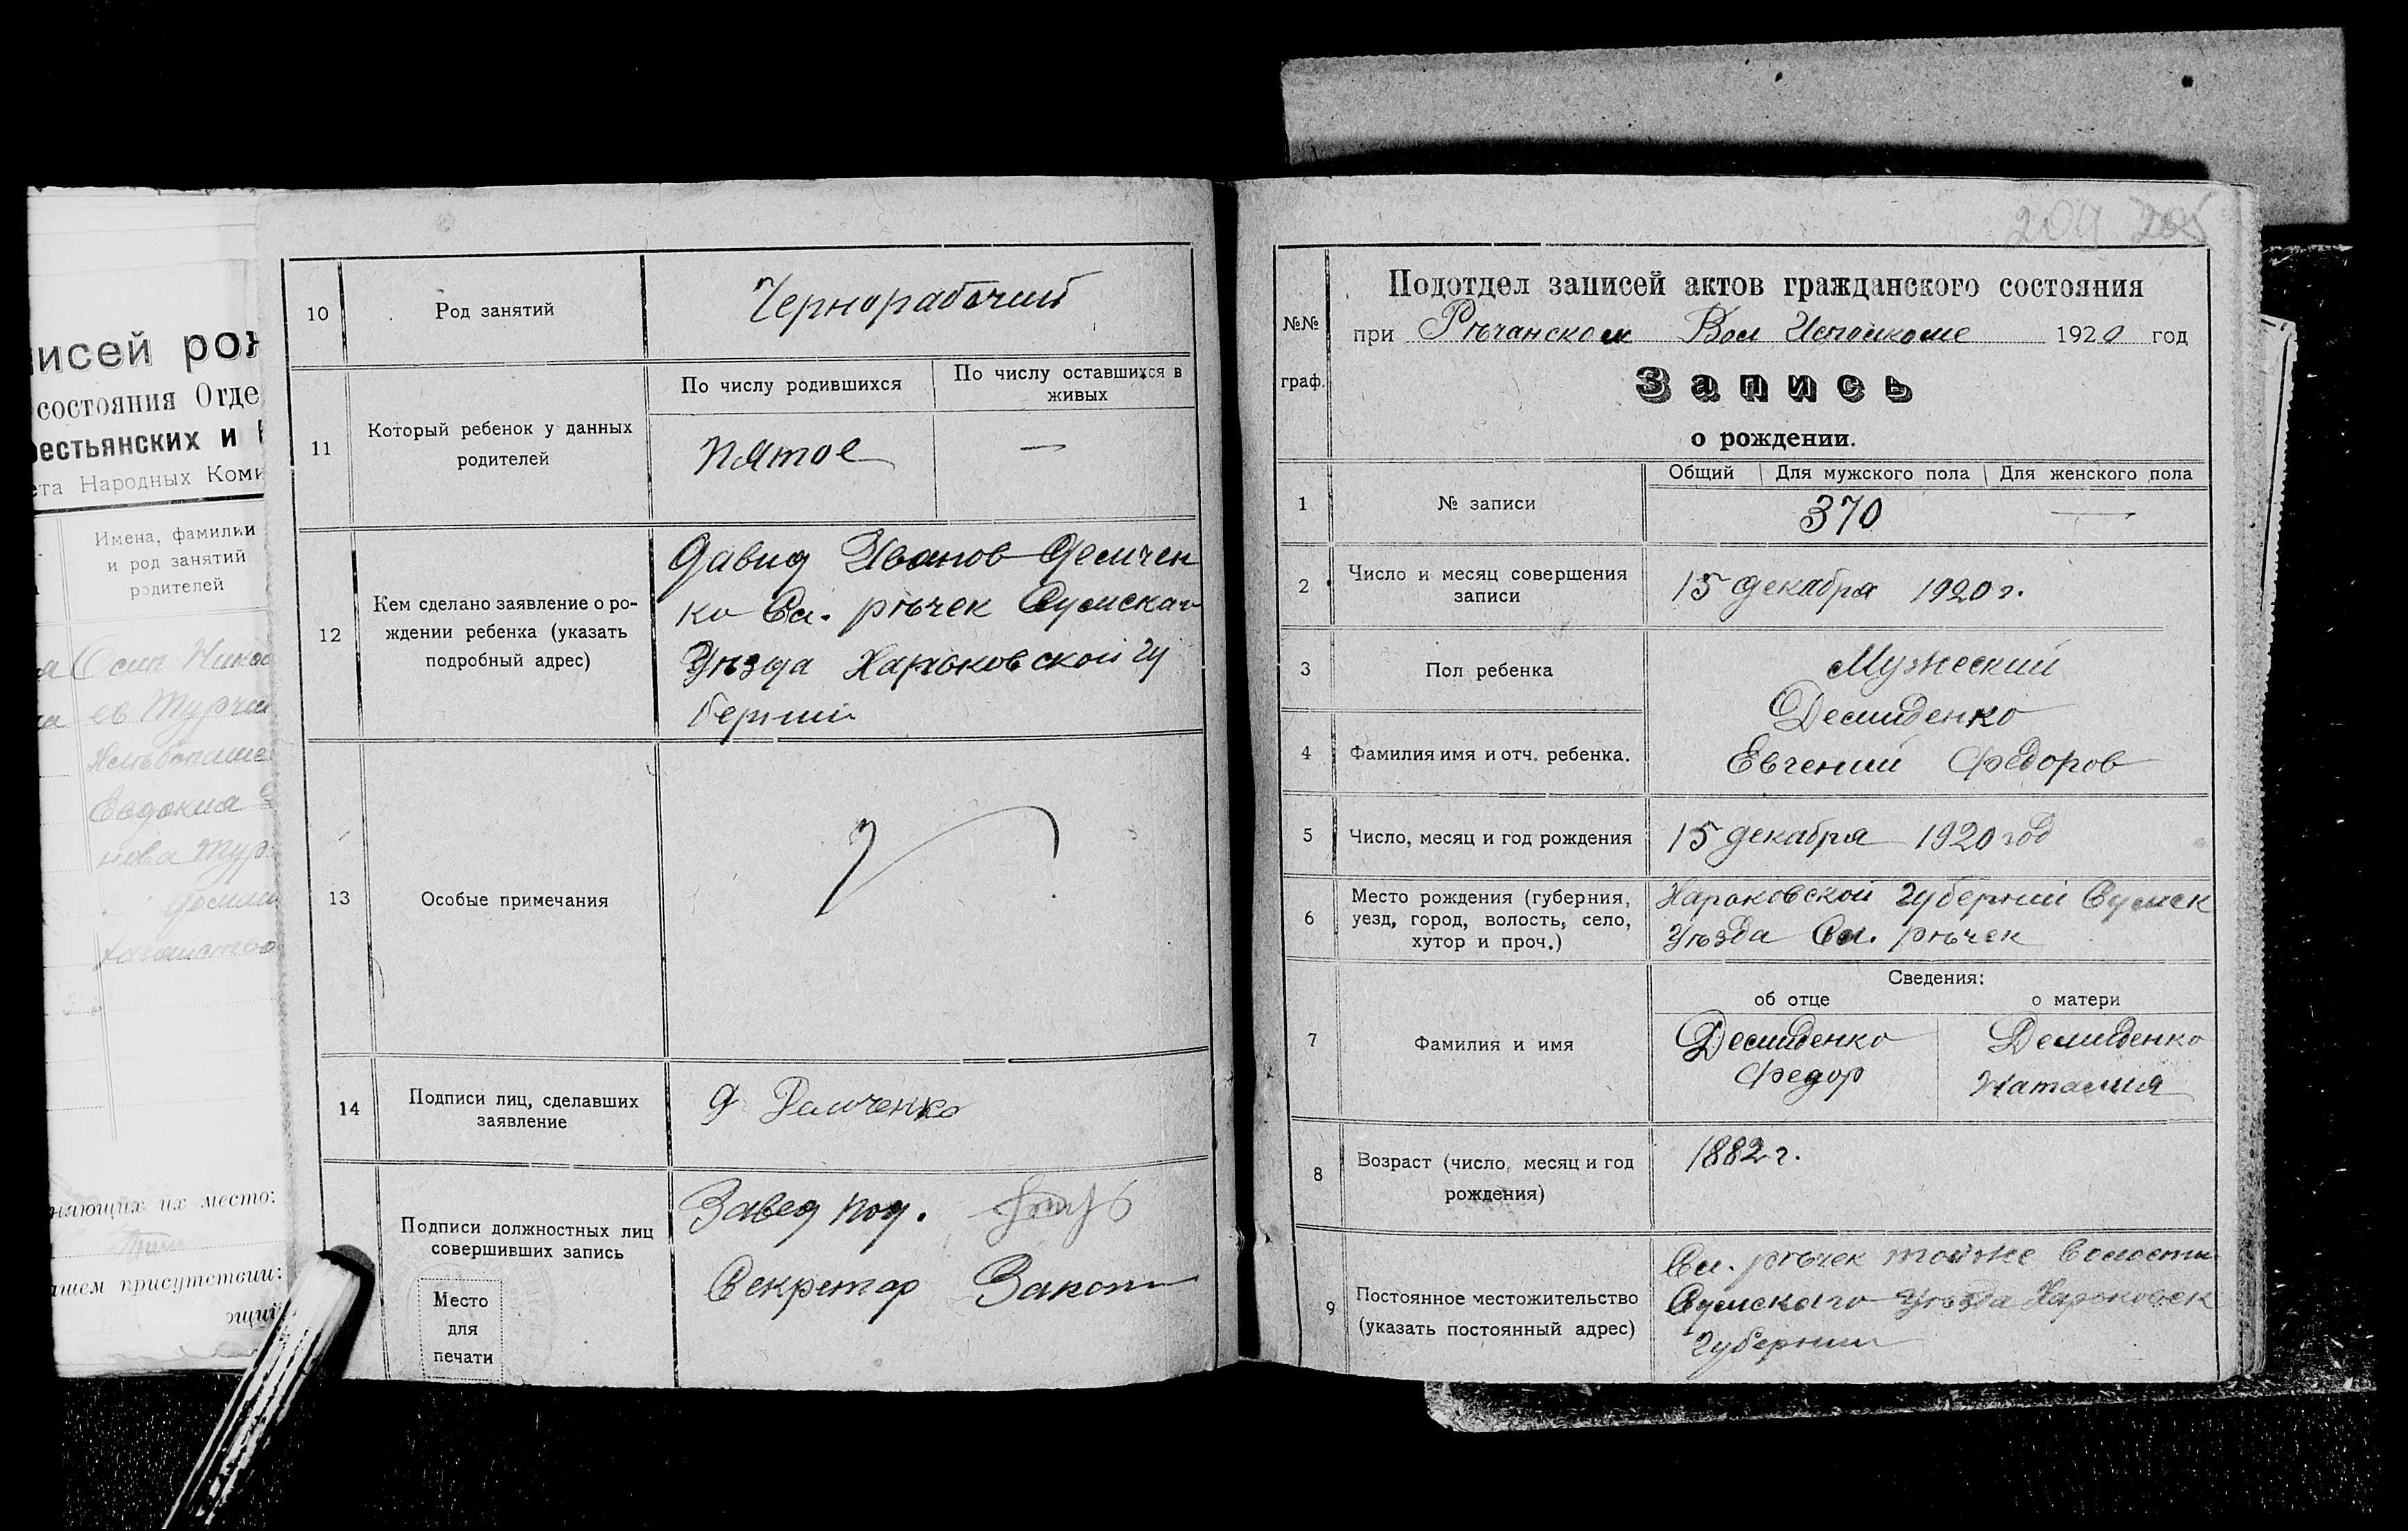 исей рож
состояния Отде
рестьянских и
ета Народных Коми
Имена, фамилии
и род занятий
родителей
Осип
ев Турчан
Евдокия
нова Тур
няющих их место:
ашем присутствии:
10
Род занятий
Чернорабочий
11
Который ребенок у данных
родителей
По числу родившихся
По числу оставшихся в
живых
пятое
—
12
Кем сделано заявление о ро-
ждении ребенка (указать
подробный адрес)
Давид Иванов Демчен
ко Сл. рѣчек Сумскаго
Уѣзда Харьковской гу
берний
13
Особые примечания
14
Подписи лиц, сделавших
заявление
Д Демченко
Подписи должностных лиц
совершивших запись
Завед под.
Секретар
Место
для
печати
204 205
№№
граф.
Подотдел записей актов гражданского состояния
при Рѣчанском Вол Исполкоме 1920 год
Запись
о рождении.
1
№ записи
Общий
Для мужского пола
Для женского пола
370
—
2
Число и месяц совершения
записи
15 декабря 1920 г.
3
Пол ребенка
Мужеский
4
Фамилия имя и отч. ребенка.
Демиденко
Евгений Федоров
5
Число, месяц и год рождения
15 декабря 1920 год
6
Место рождения (губерния,
уезд, город, волость, село,
хутор и проч.)
Харьковской Губернии Сумск
Уѣзда Сл. рѣчек
7
Фамилия и имя
Сведения:
об отце
о матери
Демиденко
Федор
Демиденко
Наталия
8
Возраст (число, месяц и год
рождения)
1882 г.
9
Постоянное местожительство
(указать постоянный адрес)
Сл. рѣчек тойже волости
Сумскаго Уѣзда Харьковск
Губернии